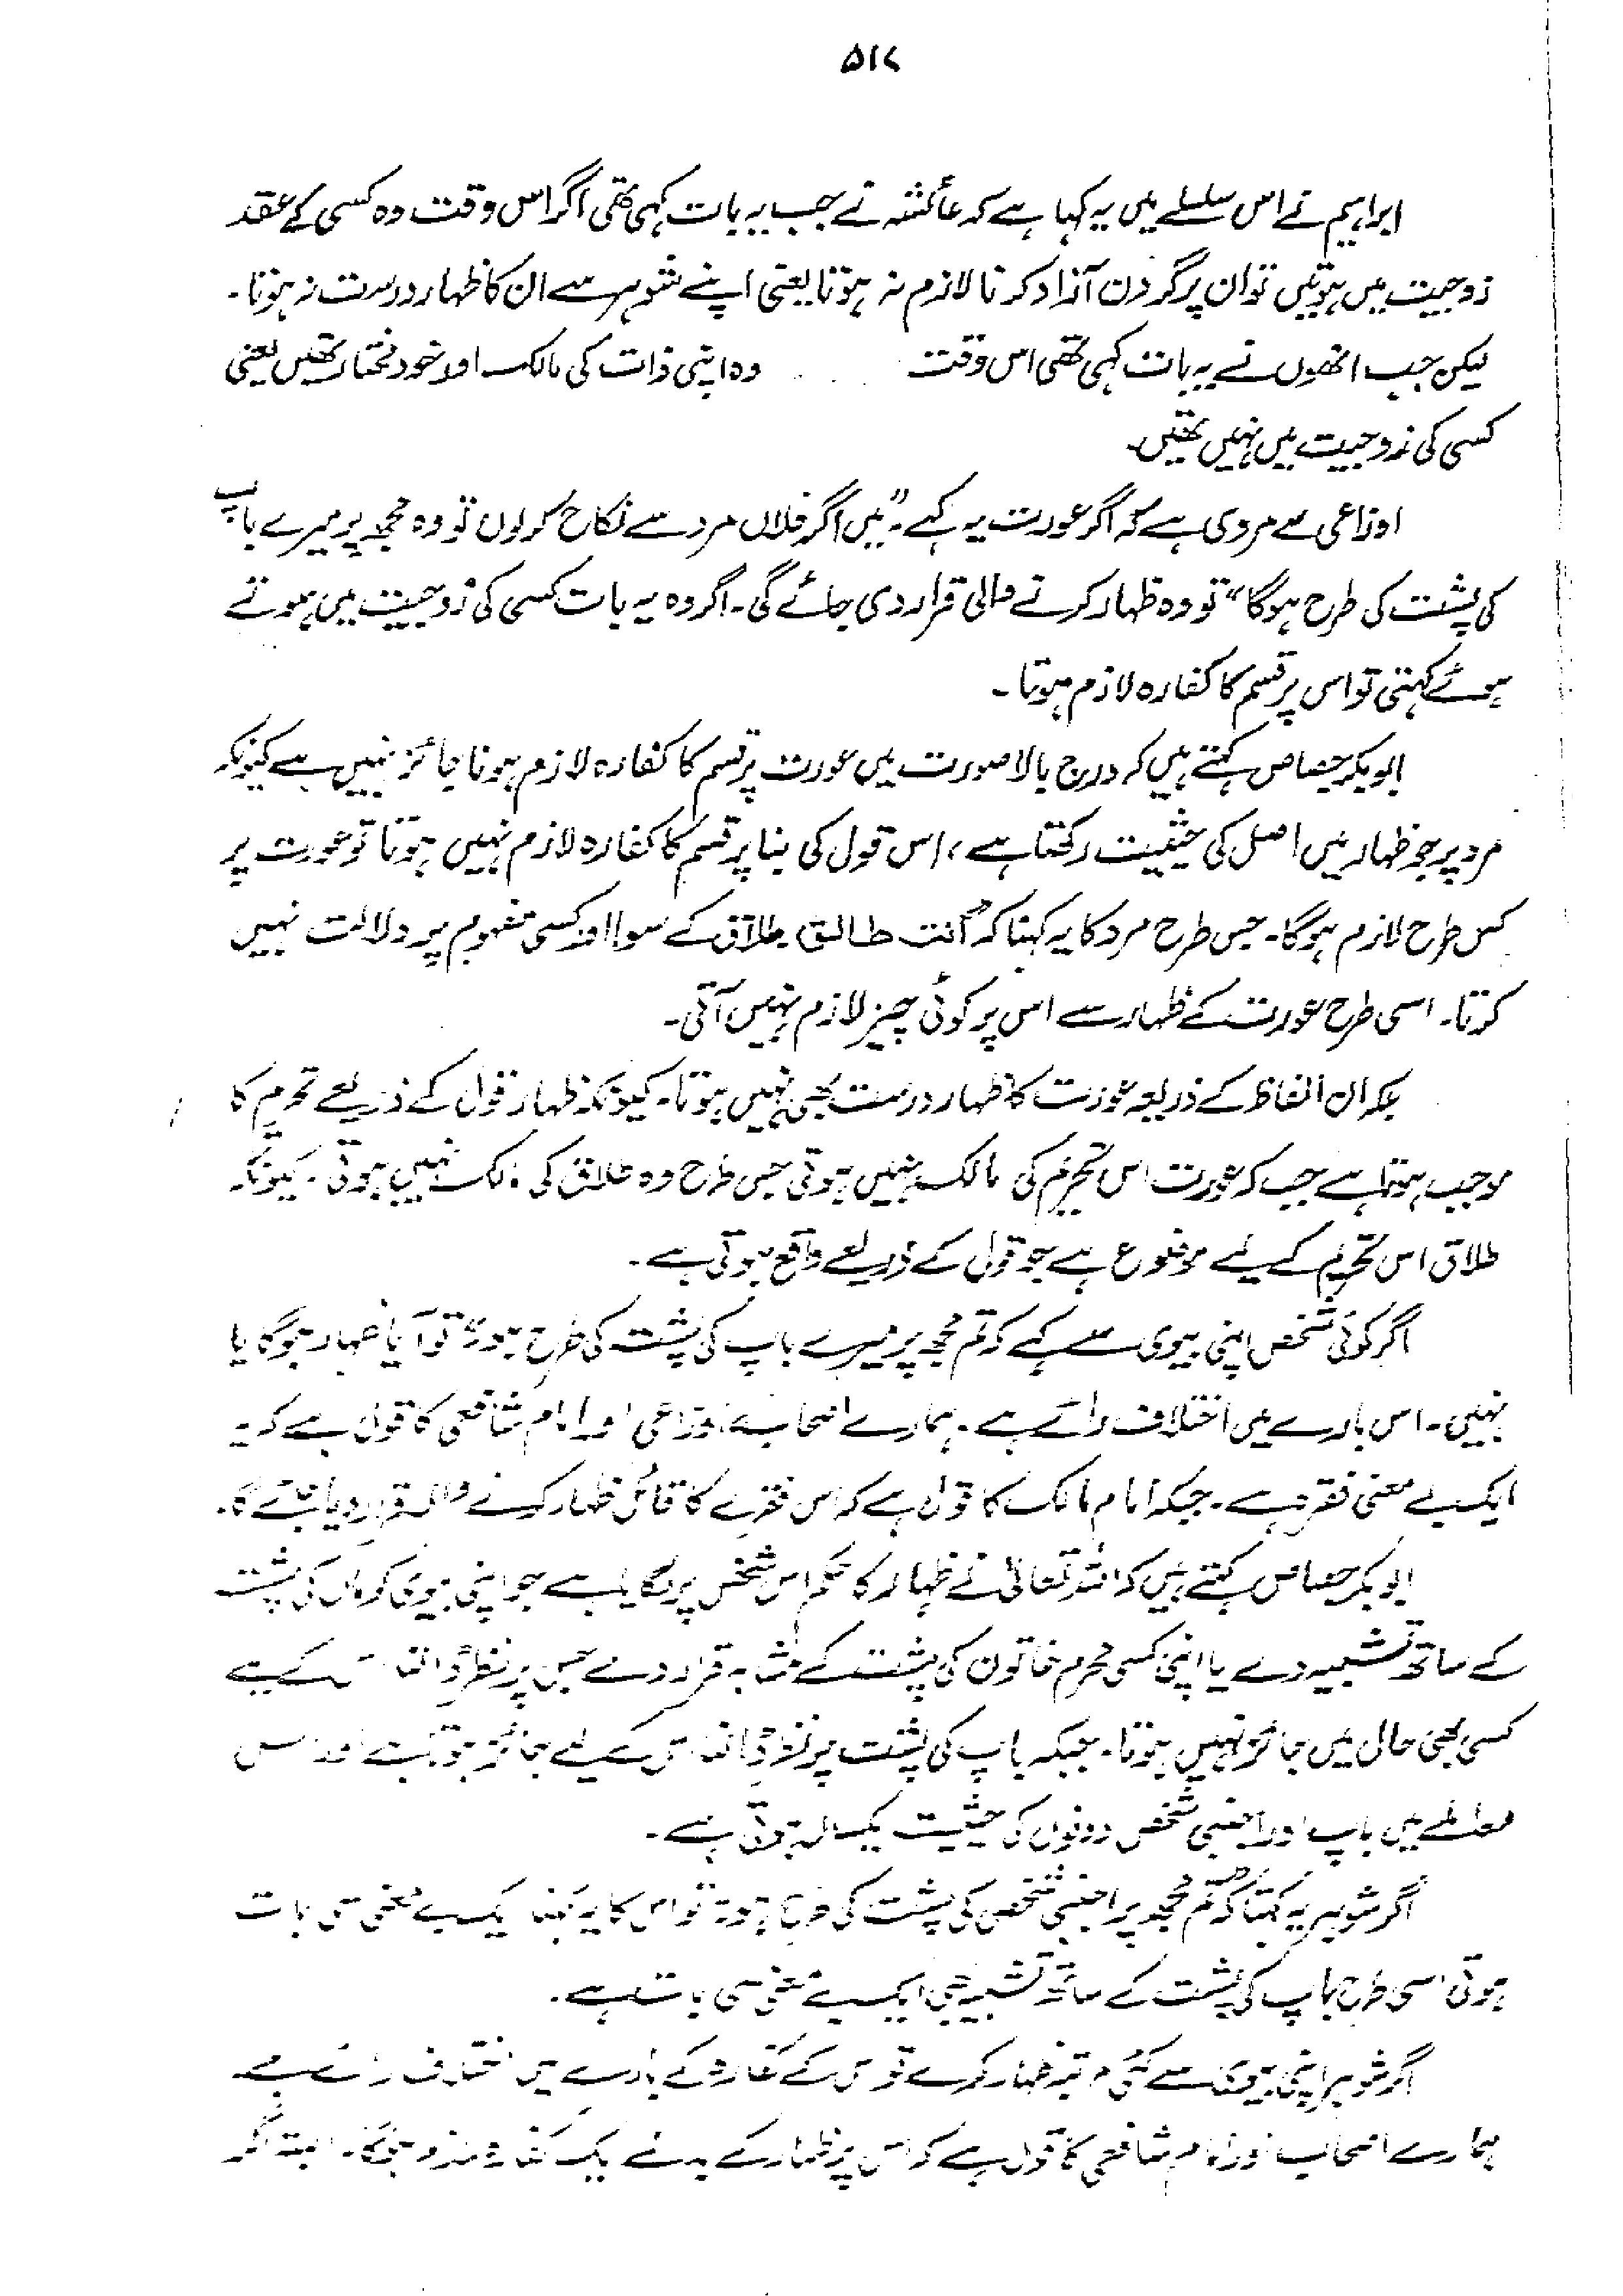 ۵۱۷
ابراہیم نے اس سلسلے میں یہ کہا ہے کہ عائشہ نے جب یہ بات کہی تھی اگر اس وقت وہ کسی کے عقد
زوجیت میں ہوتیں تو ان پر گردن آزاد کرنا لازم نہ ہوتا یعنی اپنے شوہر سے ان کا ظہار درست نہ ہوتا۔
لیکن جب انھوں نے یہ بات کہی تھی اس وقت وہ اپنی ذات کی مالک اور خود مختار تھیں یعنی
کسی کی زوجیت میں نہیں تھیں۔
اوزاعی سے مروی ہے کہ اگر عورت یہ کہے۔ "میں اگر فلاں مرد سے نکاح کر لوں تو وہ مجھ پر میرے باپ
کی پشت کی طرح ہوگا" تو وہ ظہار کرنے والی قرار دی جائے گی۔ اگر وہ یہ بات کسی کی زوجیت میں ہوتے
ہوئے کہتی تو اس پر قسم کا کفارہ لازم ہوتا۔
ابوبکر جصاص کہتے ہیں کہ درج بالا صورت میں عورت پر قسم کا کفارہ لازم ہونا جائز نہیں ہے کیونکہ
مرد پر جو ظہار میں اصل کی حیثیت رکھتا ہے، اس قول کی بنا پر قسم کا کفارہ لازم نہیں ہوتا تو عورت پر
کس طرح لازم ہوگا۔ جس طرح مرد کا یہ کہنا کہ "انت طالق" طلاق کے سوا اور کسی مفہوم پر دلالت نہیں
کرتا۔ اسی طرح عورت کے ظہار سے اس پر کوئی چیز لازم نہیں آتی۔
بلکہ ان الفاظ کے ذریعہ عورت کا ظہار درست بھی نہیں ہوتا۔ کیونکہ ظہار قول کے ذریعے تحریم کا
موجب ہوتا ہے جب کہ عورت اس تحریم کی مالک نہیں ہوتی جس طرح وہ طلاق کی مالک نہیں ہوتی۔ کیونکہ
طلاق اس تحریم کے لیے موضوع ہے جو قول کے ذریعے واقع ہوتی ہے۔
اگر کوئی شخص اپنی بیوی سے کہے کہ "تم مجھ پر میرے باپ کی پشت کی طرح ہو" تو آیا ظہار ہوگا یا
نہیں۔ اس بارے میں اختلاف رائے ہے۔ ہمارے اصحاب، اوزاعی اور امام شافعی کا قول ہے کہ یہ
ایک بے معنی فقرہ ہے۔ جبکہ امام مالک کا قول ہے کہ اس فقرے کا قائل ظہار کرنے والا قرار دیا جائے گا۔
ابوبکر جصاص کہتے ہیں کہ اللہ تعالیٰ نے ظہار کا حکم اس شخص پر لگایا ہے جو اپنی بیوی کو ماں کی پشت
کے ساتھ تشبیہ دے یا اپنی کسی محرم خاتون کی پشت کے مشابہ قرار دے جس پر نظر ڈالنا اس کے لیے
کسی بھی حال میں جائز نہیں ہوتا۔ جبکہ باپ کی پشت پر نظر ڈالنا اس کے لیے جائز ہوتا ہے اور اس
معاملے میں باپ اور اجنبی شخص دونوں کی حیثیت یکساں ہوتی ہے۔
اگر شوہر یہ کہتا کہ "تم مجھ پر اجنبی شخص کی پشت کی طرح ہو" تو اس کا یہ کہنا ایک بے معنی سی بات
ہوتی اسی طرح باپ کی پشت کے ساتھ تشبیہ بھی ایک بے معنی سی بات ہے۔
اگر شوہر اپنی بیوی سے کئی مرتبہ ظہار کرے تو اس کے کفارہ کے بارے میں اختلاف رائے ہے۔
ہمارے اصحاب اور امام شافعی کا قول ہے کہ اس پر ظہار کے بدلے ایک کفارہ لازم ہوگا۔ البتہ اگر